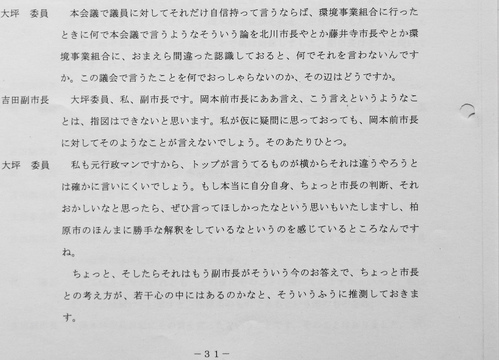 大坪　委員　　本会議で議員に対してそれだけ自信持って言うならば、環境事業組合に行った
ときに何で本会議で言うようなそういう論を北川市長やとか藤井寺市長やとか環
境事業組合に、おまえら間違った認識しておると、何でそれを言わないんです
か。この議会で言うたことを何でおっしゃらないのか、その辺はどうですか。
吉田副市長　　大坪委員、私、副市長です。岡本前市長にああ言え、こう言えというようなこ
とは、指図はできないと思います。私が仮に疑問に思っておっても、岡本前市長
に対してそのようなことが言えないでしょう。そのあたりひとつ。
大坪　委員　　私も元行政マンですから、トップが言うてるものが横からそれは違うやろうと
は確かに言いにくいでしょう。もし本当に自分自身、ちょっと市長の判断、それ
おかしいなと思ったら、ぜひ言ってほしかったなという思いもいたしますし、柏
原市のほんまに勝手な解釈をしているなというのを感じているところなんです
ね。
ちょっと、そしたらそれはもう副市長がそういう今のお答えで、ちょっと市長
との考え方が、若干心の中にはあるのかなと、そういうふうに推測しておきま
す。
－31－